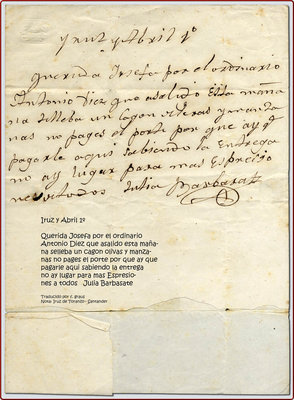 Yruz y Abril 1º
Querida Josefa por el ordinario
Antonio Diez que asalido esta maña
na selleba un cagon olivas y manza
nas no pages el porte por que ay q
pagarle aqui sabiendo la entrega
no ay lugar para mas Espresio
nes a todos Julia Barbasat
Iruz y Abril 1º
Querida Josefa por el ordinario
Antonio Diez que asalido esta maña-
na selleba un cagon olivas y manza-
nas no pages el porte por que ay que
pagarle aqui sabiendo la entrega
no ay lugar para mas Espresio-
nes a todos Julia Barbasate
Traducido por f. graus
Nota: Iruz de Toranzo- Santander